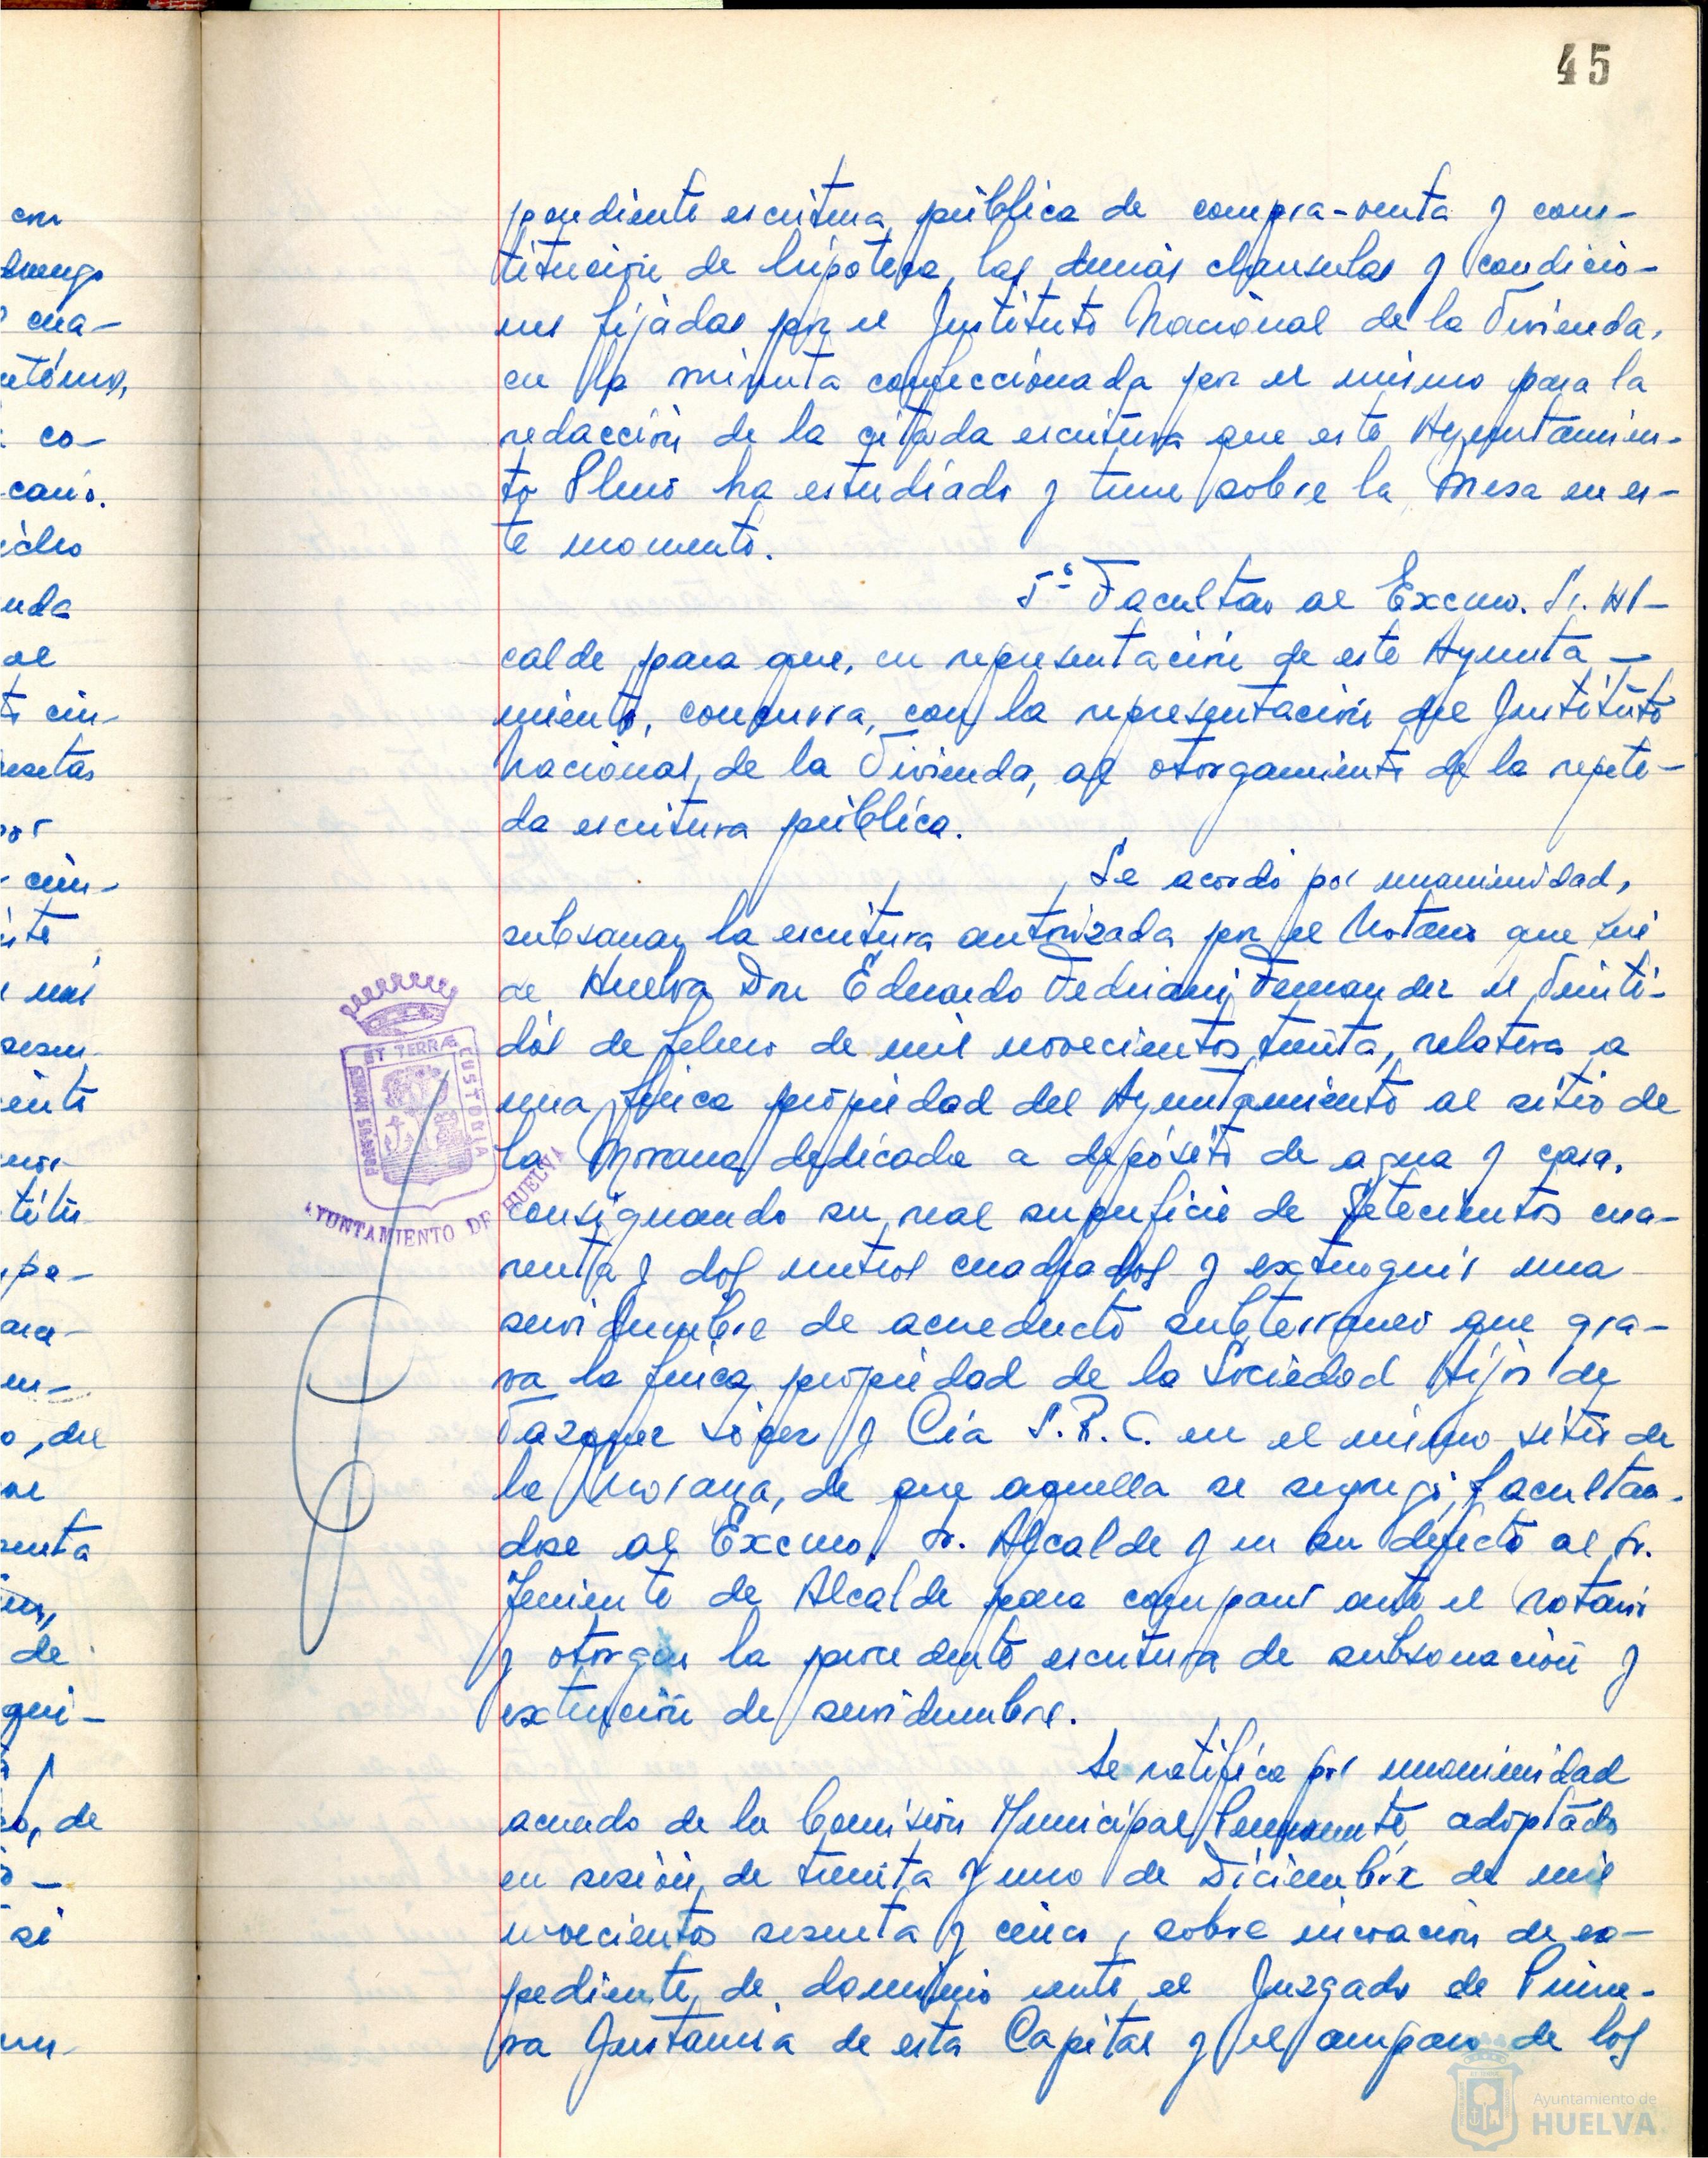 45
pondiente escritura pública de compra-venta y cons-
titución de hipoteca, las demás clausulas y condicio-
nes fijadas por el Instituto Nacional de la Vivienda,
en la minuta confeccionada por el mismo para la
redacción de la citada escritura que este Ayuntamien-
to Pleno ha estudiado y tiene sobre la Mesa en es-
te momento.
5º Facultar al Excmo. Sr. Al-
calde para que, en representación de este Ayunta-
miento, concurra, con la representación del Instituto
Nacional de la Vivienda, al otorgamiento de la repeti-
da escritura pública.
Se acordó por unanimidad,
subsanar la escritura autorizada por el Notario que fué
de Huelva Don Eduardo Fedriani Fernandez el Veinti-
dós de febrero de mil novecientos treinta, relativa a
una finca propiedad del Ayuntamiento al sitio de
la Morana dedicada a depósito de agua y casa,
consignando su real superficie de Setecientos cua-
renta y dos metros cuadrados y extinguir una
servidumbre de acueducto subterraneo que gra-
va la finca propiedad de la Sociedad Hijos de
Vazquez López y Cía S.R.C. en el mismo sitio de
la Morana, de que aquella se segregó, facultan-
dose al Excmo. Sr. Alcalde y en su defecto al Sr.
Teniente de Alcalde para comparecer ante el notario
y otorgar la procedente escritura de subsanación y
extinción de servidumbre.
Se ratifica por unanimidad
acuerdo de la Comisión Municipal Permanente, adoptado
en sesión de treinta y uno de Diciembre de mil
novecientos sesenta y cinco, sobre incoación de ex-
pediente de dominio ante el Juzgado de Prime-
ra Instancia de esta Capital y al amparo de los
PORTUS MARIS
ET TERRÆ
CUSTODIA
AYUNTAMIENTO DE HUELVA
Ayuntamiento de
HUELVA